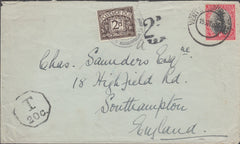 POSTAGE DUE
2D
2D
Chas. Saunders Esqre
18 Highfield Rd.
Southampton
England.
T
20c